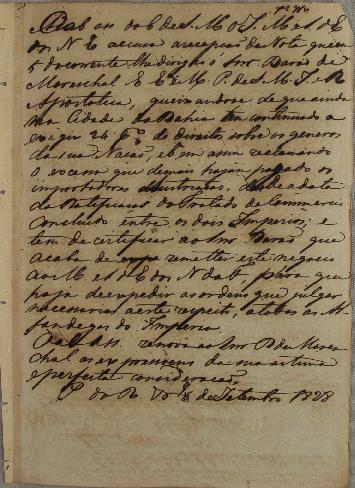 O abaixo assinado do C. de S. M. O I. M. e S. d'E
dos N. E. accusa a recepção da Nota que em
5 do corrente lhe dirigio o Snr Barão de
Mareschal E. E. e M. P. de S. M. I. R.
Apostolica, queixandose de que ainda
na Cidade da Bahia tem continuado a
exigir 24 p% de direitos sobre os generos
da sua Nação, e bem assim reclamando
o excesso que demais hajão pagado os
importadores Austriacos, desde a data
da Ratificação do Tratado de Commercio
concluido entre os dois Imperios; e
tem de certificar ao Snr Barão que
acaba de remetter este negocio
ao M. e S. d'E. dos N. da F. para que
haja de expedir as ordens que julgar
necessarias a este respeito, a todas as Al-
fandegas do Imperio.
O Abaixo Ass. renova ao Snr B. de Mares-
chal as expressoens da sua estima
e perfeita consideração.
P. do R. de J. 8 de Setembro 1828